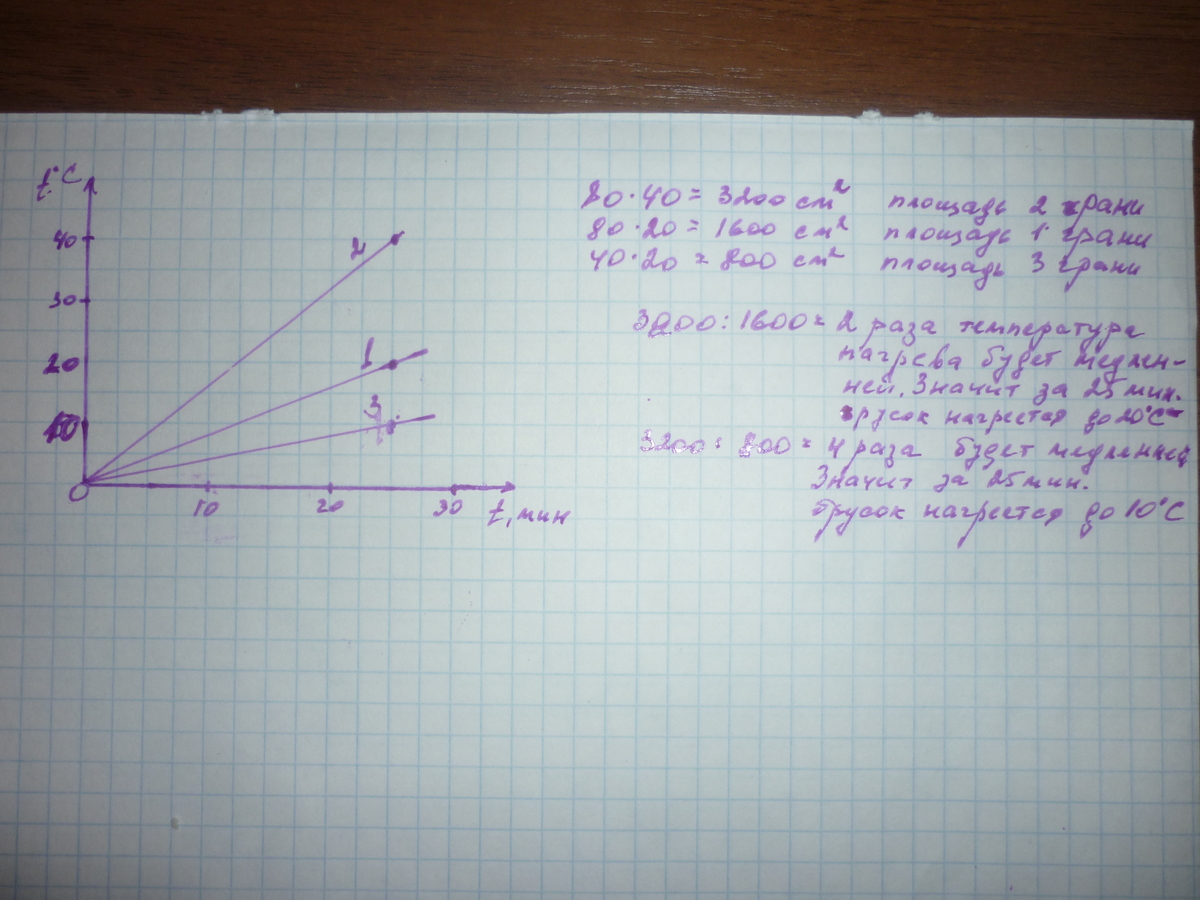 t°C
40
30
20
10
0
10
20
30
t, мин
2
1
3
80·40 = 3200 см² площадь 2 грани
80·20 = 1600 см² площадь 1 грани
40·20 = 800 см² площадь 3 грани
3200 : 1600 = 2 раза температура
нагрева будет медлен-
ней. Значит за 25 мин.
брусок нагреется до 20°C
3200 : 800 = 4 раза будет медленней
Значит за 25 мин.
брусок нагреется до 10°C